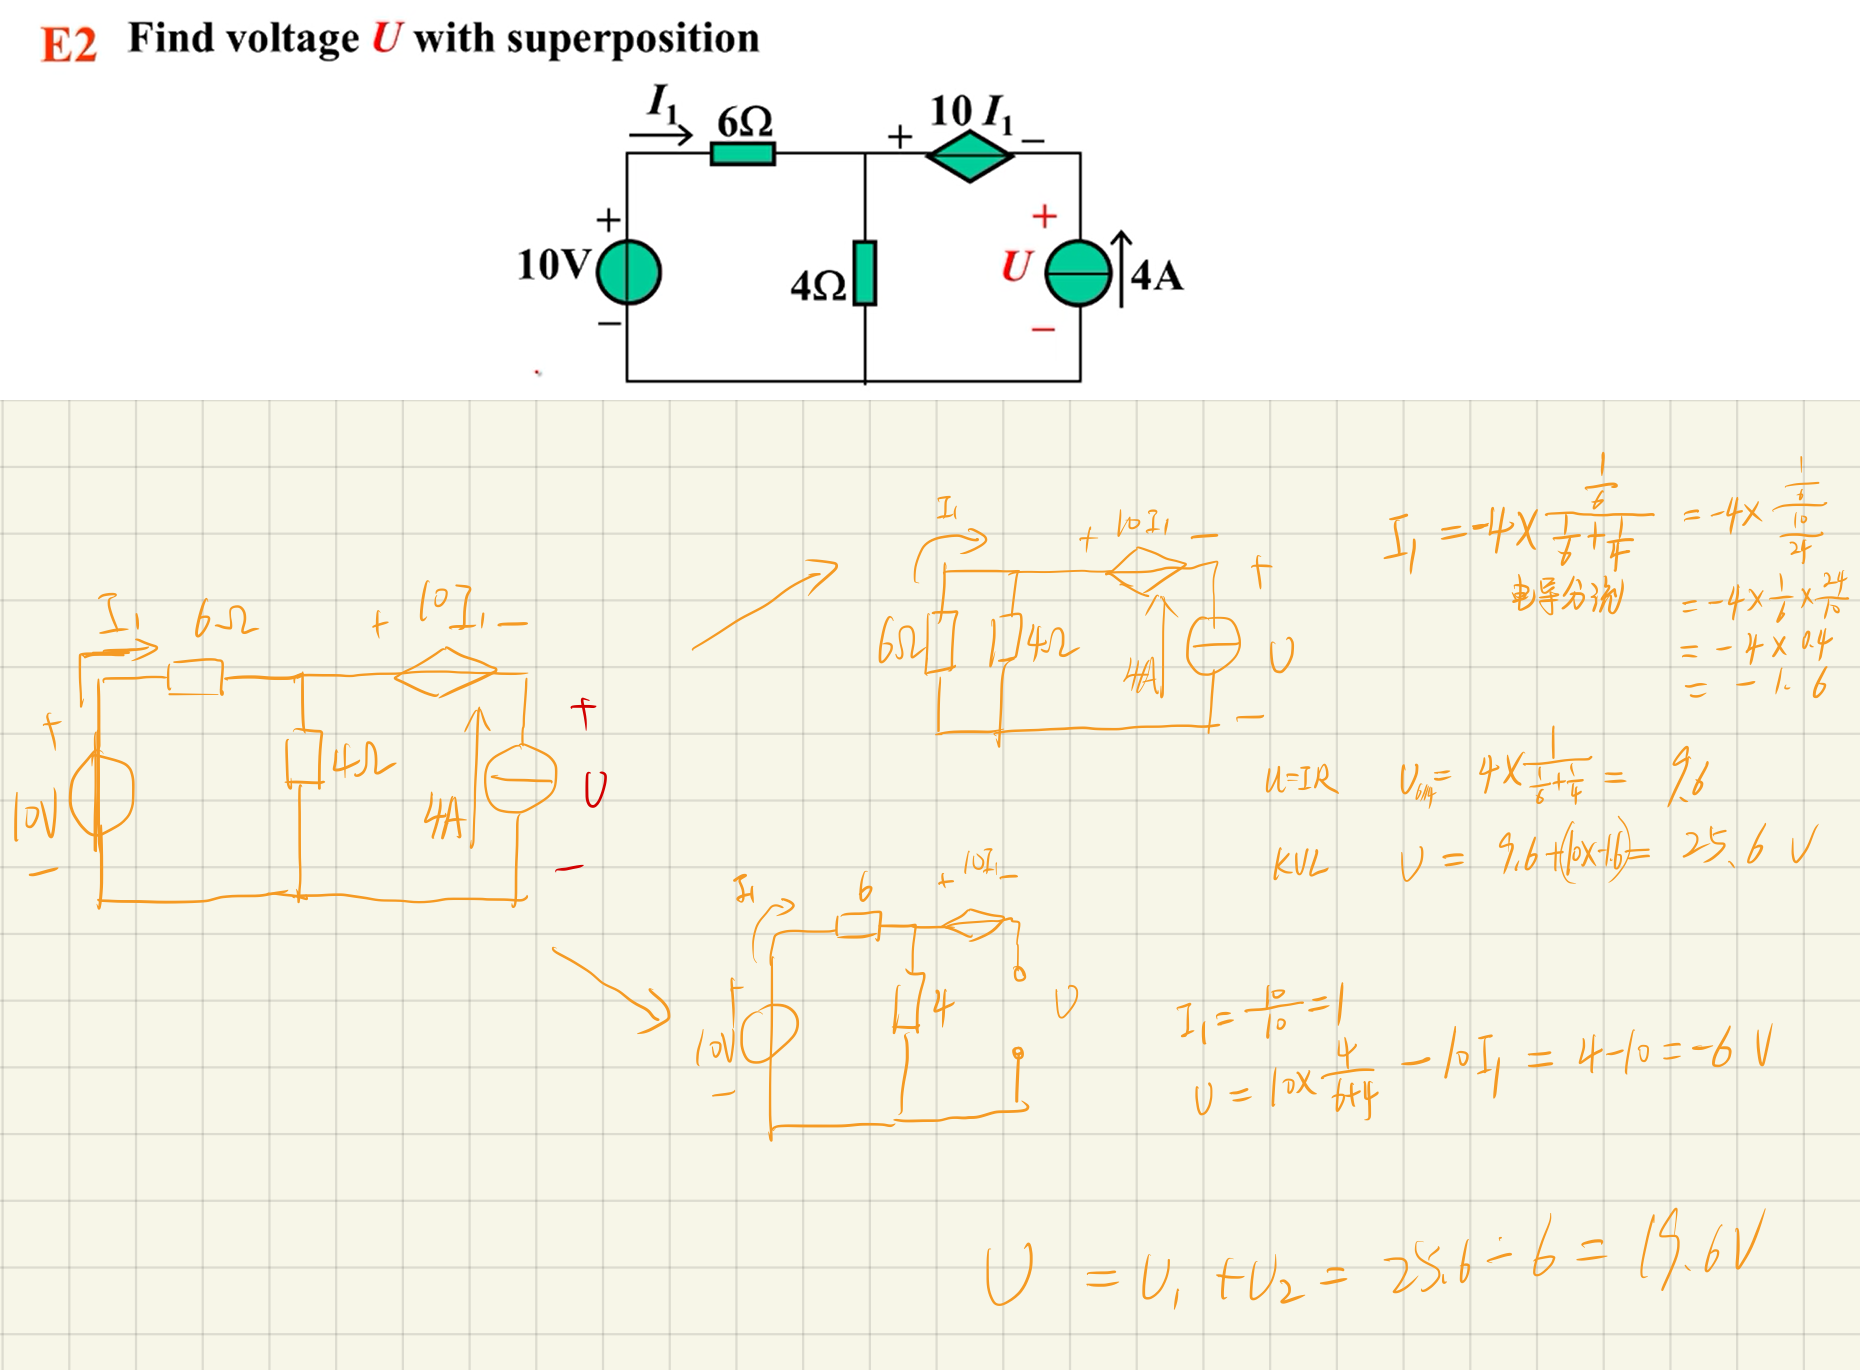 E2 Find voltage U with superposition
I₁ 6Ω + 10 I₁ −
+ 10V −
4Ω
+ U −
4A
I₁ 6Ω + 10I₁ −
+ 10V −
4Ω
4A
+ U −
I₁ + 10I₁ −
6Ω 4Ω 4A + U −
I₁ = -4 × (1/6)/(1/6 + 1/4) = -4 × (1/6)/(10/24)
电导分流 = -4 × 1/6 × 24/10
= -4 × 0.4
= -1.6
U=IR U₆//₄ = 4 × 1/(1/6 + 1/4) = 9.6
KVL U = 9.6 + (10×1.6) = 25.6 V
I₁ 6 + 10I₁ −
+ 10V − 4 U
I₁ = 10/10 = 1
U = 10 × 4/(6+4) − 10I₁ = 4−10 = −6 V
U = U₁ + U₂ = 25.6 − 6 = 19.6V